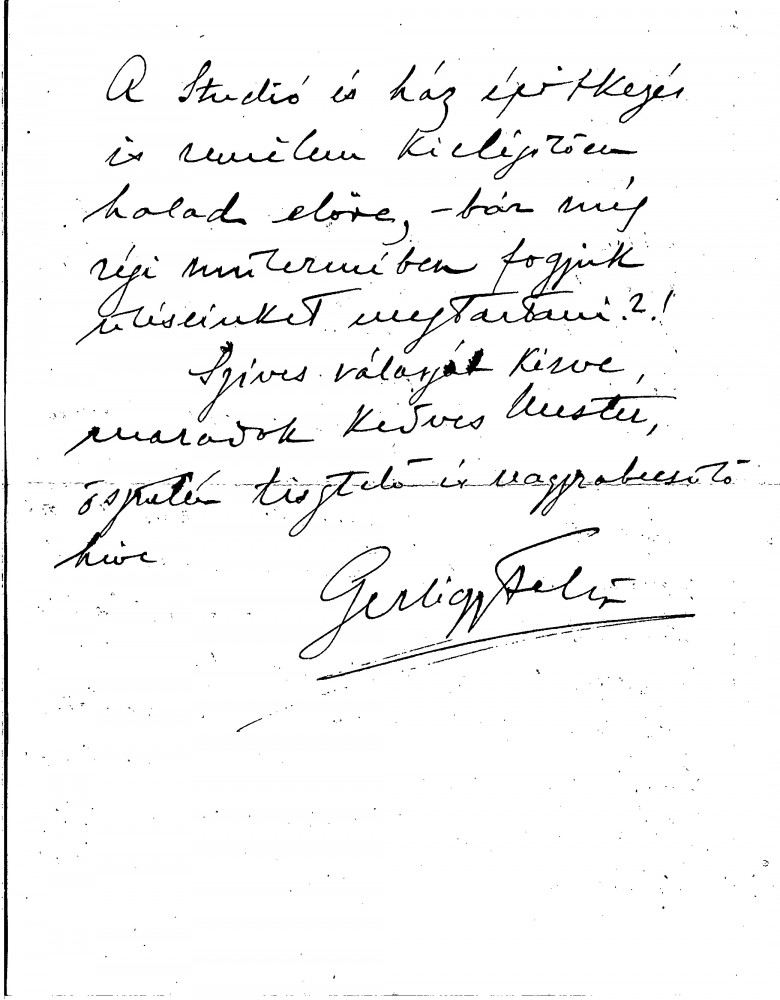 A Studió és ház épitkezés
is remélem kielégitően
halad előre, – bár még
régi műtermében fogjuk
üléseinket megtartani.?.!
Szíves válaszát kérve,
maradok Kedves Mester,
őszintén tisztelő és nagyrabecsülő
hive